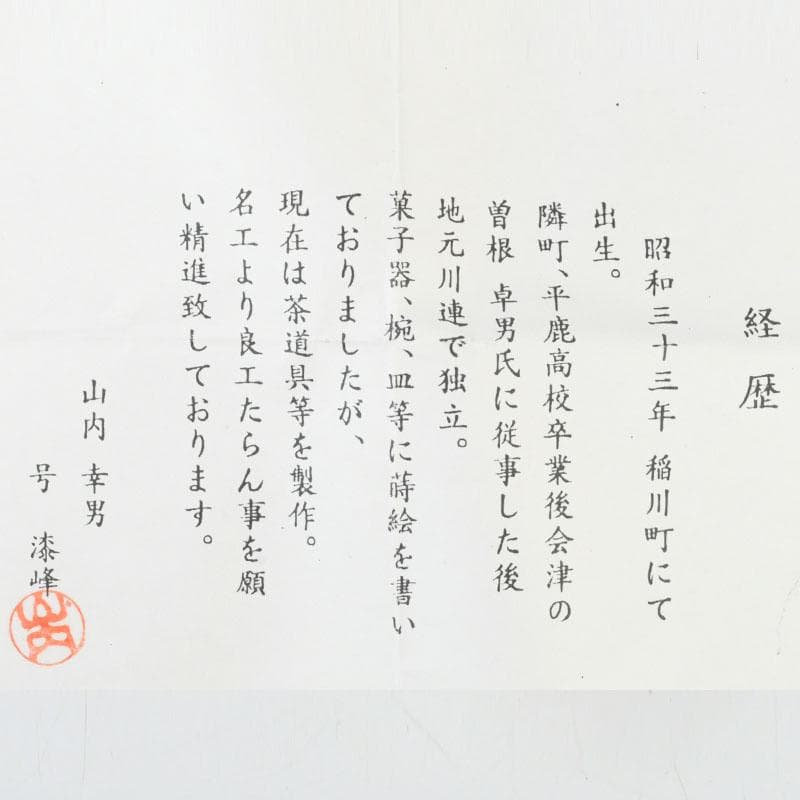 経歴
昭和三十三年 稲川町にて
出生。
隣町、平鹿高校卒業後会津の
曽根 卓男氏に従事した後
地元川連で独立。
菓子器、椀、皿等に蒔絵を書い
ておりましたが、
現在は茶道具等を製作。
名工より良工たらん事を願
い精進致しております。
山内 幸男
号 漆峰